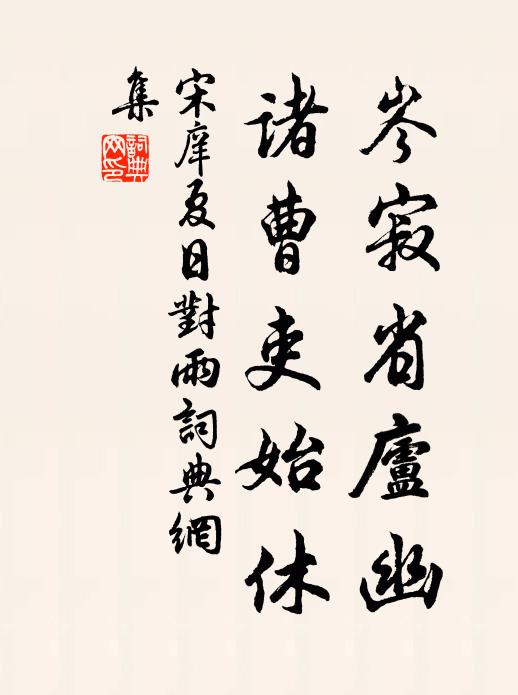 岑寂省廬幽
諸曹吏始休
宋庠夏日對雨詞典網
集
詞典
网印